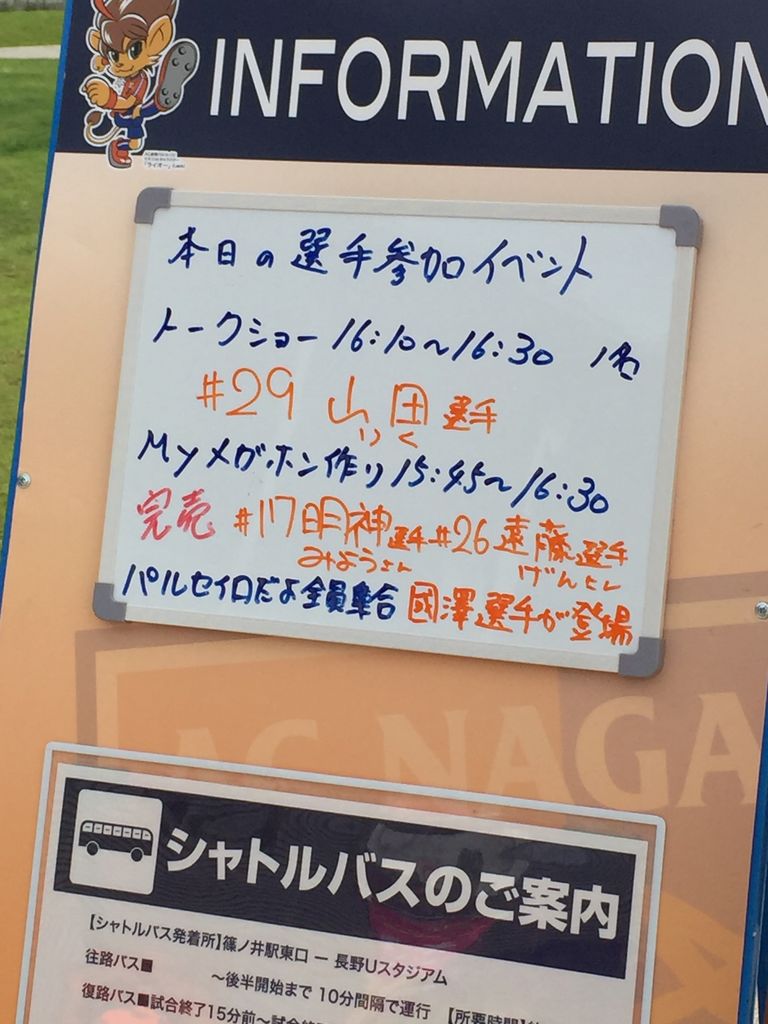 INFORMATION
本日の選手参加イベント
トークショー 16:10～16:30 1名
#29 山田選手
りく
Myメガホン作り 15:45～16:30
完売 #17明神選手 #26遠藤選手
みょうじん げんとし
パルセイロだよ全員集合 國澤選手が登場
AC NAGA
シャトルバスのご案内
【シャトルバス発着所】篠ノ井駅東口 ー 長野Uスタジアム
往路バス■ ～後半開始まで 10分間隔で運行 【所要時間】
復路バス■試合終了15分前～試合終